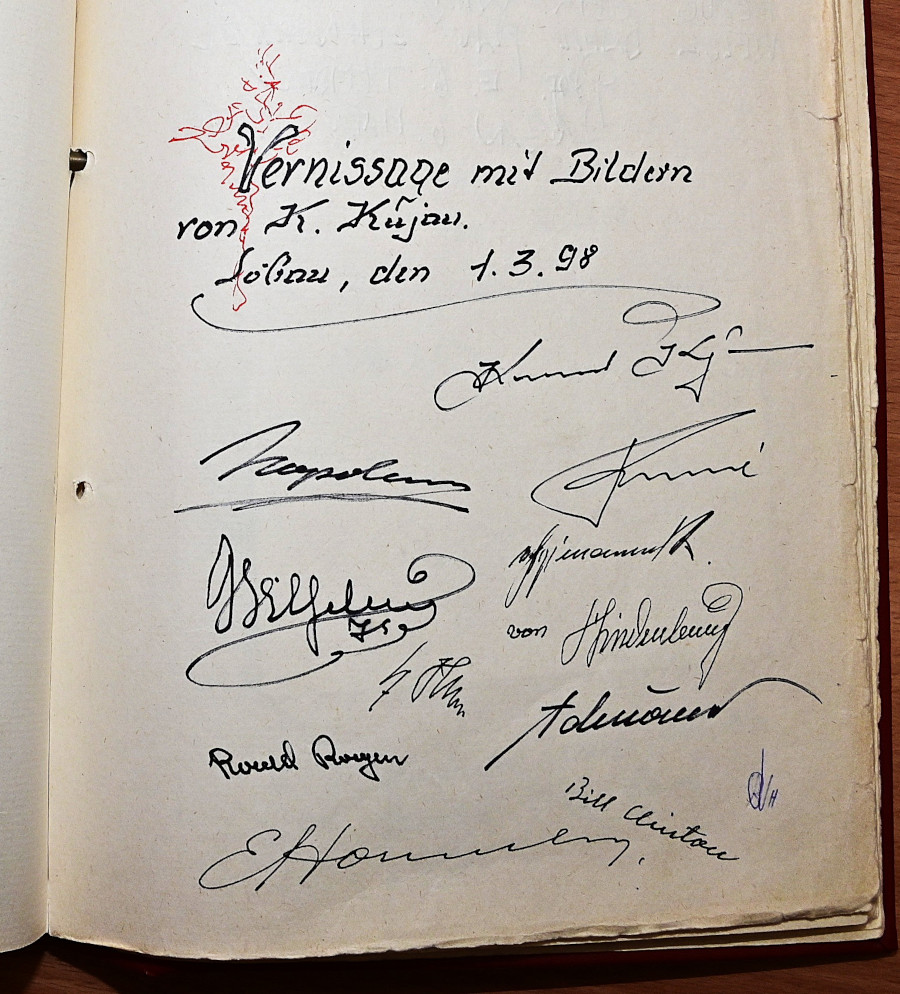 Vernissage mit Bildern
von K. Kŭjau.
Löbau, den 1.3.98
Konrad Kujau
Napoleon
Wilhelm
von Hindenburg
Adenauer
Ronald Reagen
Bill Clinton
EHonecker